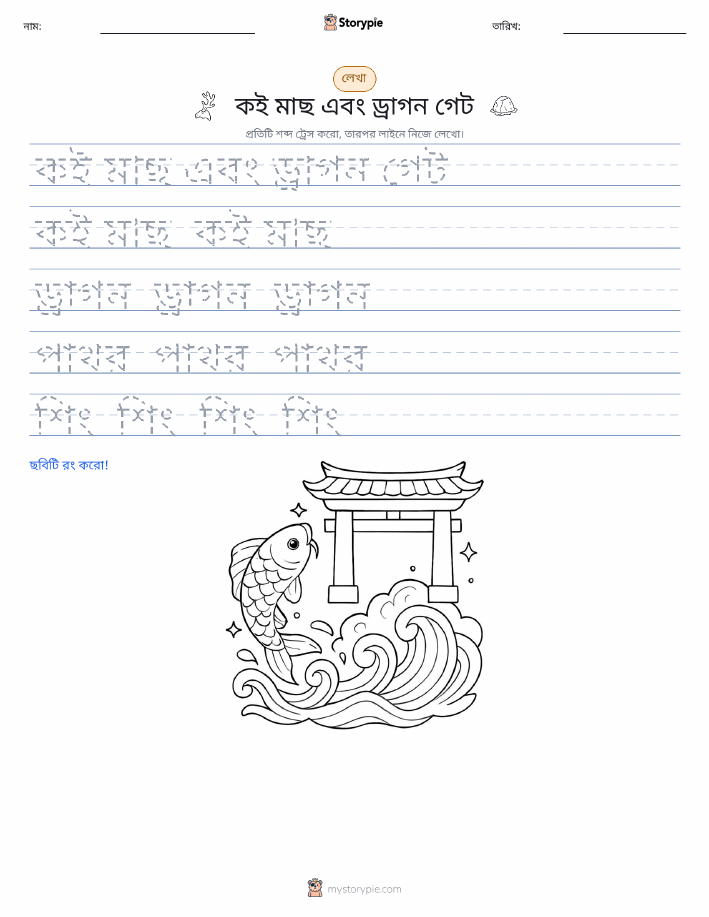 নাম:
Storypie
তারিখ:
লেখা
কই মাছ এবং ড্রাগন গেট
প্রতিটি শব্দ ট্রেস করো, তারপর লাইনে নিজে লেখো।
কই মাছ এবং ড্রাগন গেট
কই মাছ কই মাছ
ড্রাগন ড্রাগন ড্রাগন
পাথর পাথর পাথর
শিং শিং শিং শিং
ছবিটি রং করো!
mystorypie.com